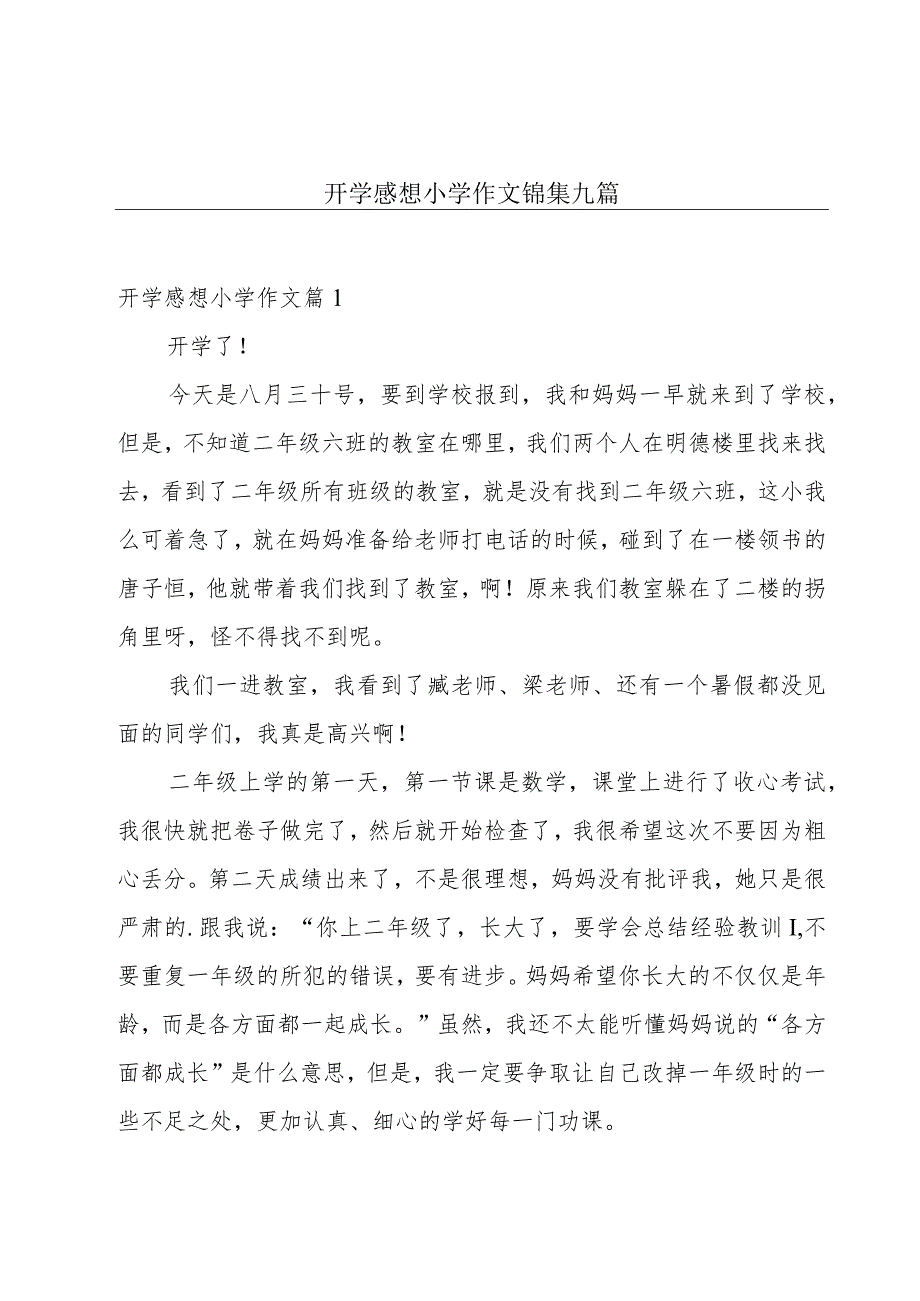 开学感想小学作文锦集九篇
开学感想小学作文篇1
开学了！
今天是八月三十号，要到学校报到，我和妈妈一早就来到了学校，
但是，不知道二年级六班的教室在哪里，我们两个人在明德楼里找来找
去，看到了二年级所有班级的教室，就是没有找到二年级六班，这小我
么可着急了，就在妈妈准备给老师打电话的时候，碰到了在一楼领书的
唐子恒，他就带着我们找到了教室，啊！原来我们教室躲在了二楼的拐
角里呀，怪不得找不到呢。
我们一进教室，我看到了臧老师、梁老师、还有一个暑假都没见
面的同学们，我真是高兴啊！
二年级上学的第一天，第一节课是数学，课堂上进行了收心考试，
我很快就把卷子做完了，然后就开始检查了，我很希望这次不要因为粗
心丢分。第二天成绩出来了，不是很理想，妈妈没有批评我，她只是很
严肃的.跟我说：“你上二年级了，长大了，要学会总结经验教训I,不
要重复一年级的所犯的错误，要有进步。妈妈希望你长大的不仅仅是年
龄，而是各方面都一起成长。”虽然，我还不太能听懂妈妈说的“各方
面都成长”是什么意思，但是，我一定要争取让自己改掉一年级时的一
些不足之处，更加认真、细心的学好每一门功课。